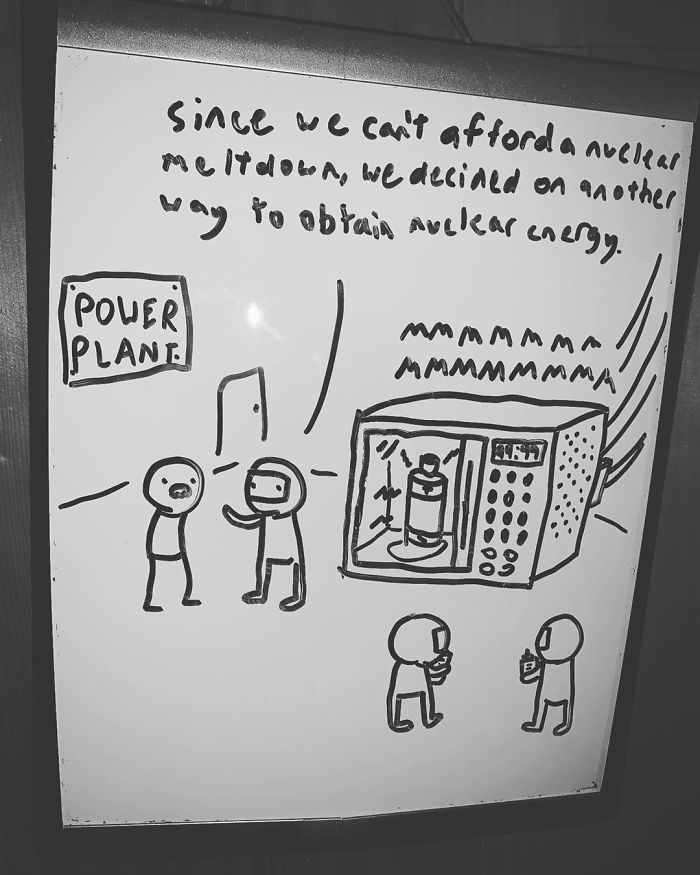 since we can't afford a nuclear
meltdown, we decined on another
way to obtain nuclear energy.
POWER
PLANT.
MMMMMMM
MMMMMMMMM
99:99